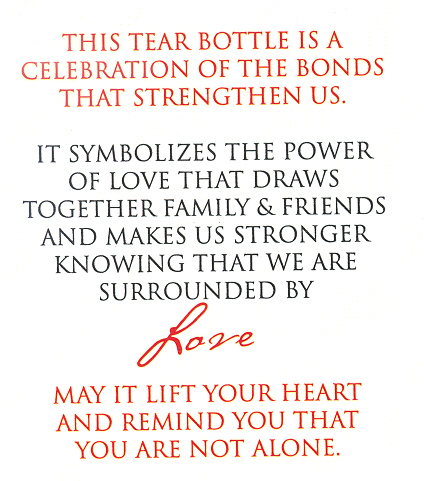 THIS TEAR BOTTLE IS A
CELEBRATION OF THE BONDS
THAT STRENGTHEN US.
IT SYMBOLIZES THE POWER
OF LOVE THAT DRAWS
TOGETHER FAMILY & FRIENDS
AND MAKES US STRONGER
KNOWING THAT WE ARE
SURROUNDED BY
Love
MAY IT LIFT YOUR HEART
AND REMIND YOU THAT
YOU ARE NOT ALONE.